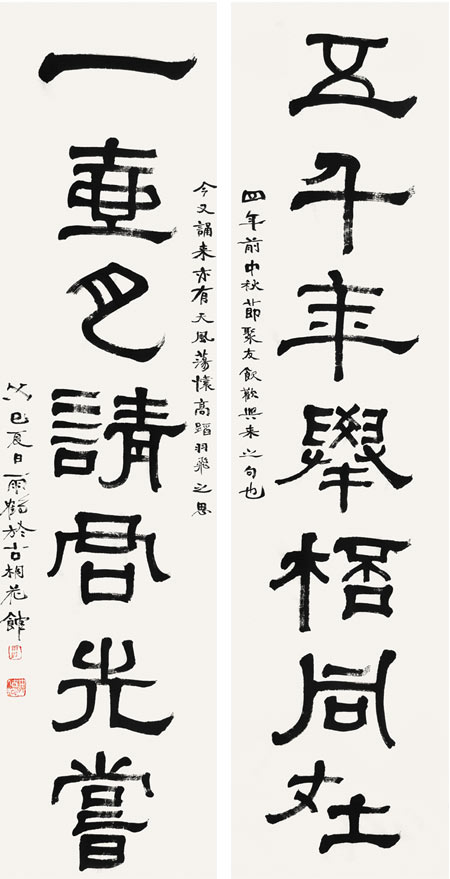 五千年舉桮同在
四年前中秋節聚友飲歡興来之句也
今又誦来亦有天風蕩懷高蹈羽飛之思
一壺色請君先嘗
癸巳夏日雨於古桐花館